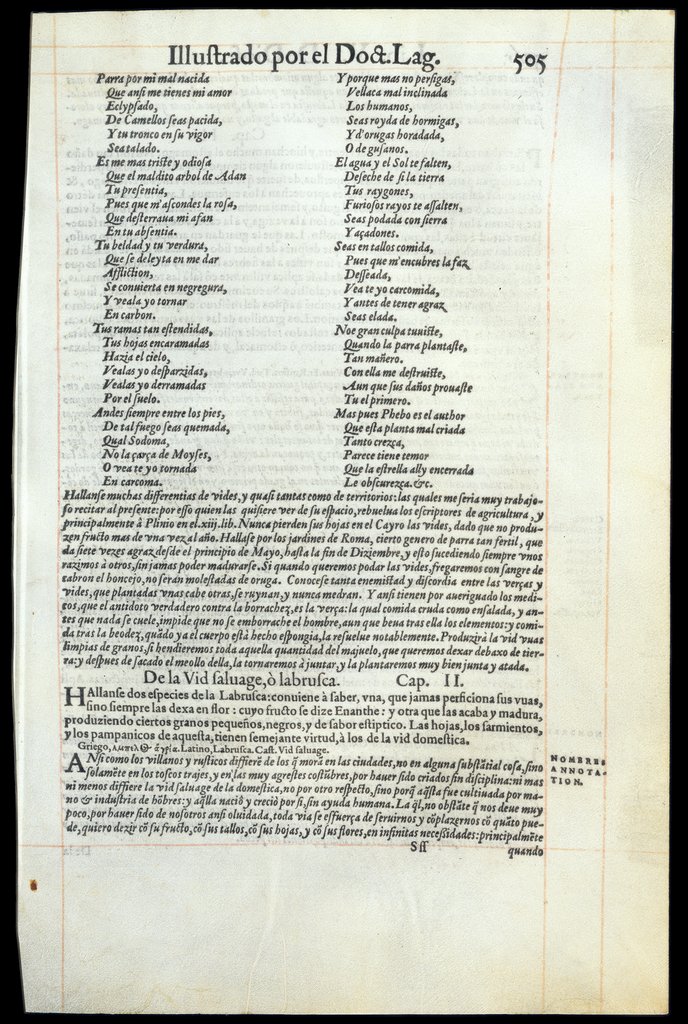 Illuſtrado por el Doct. Lag. 505
Parra por mi mal nacida
Que anſi me tienes mi amor
Eclypſado,
De Camellos ſeas pacida,
Y tu tronco en ſu vigor
Sea talado.
Es me mas triſte y odioſa
Que el maldito arbol de Adan
Tu preſentia,
Pues que m'aſcondes la roſa,
Que deſterraua mi afan
En tu abſentia.
Tu beldad y tu verdura,
Que ſe deleyta en me dar
Affliction,
Se conuierta en negregura,
Y veala yo tornar
En carbon.
Tus ramas tan eſtendidas,
Tus hojas encaramadas
Hazia el cielo,
Vealas yo deſparzidas,
Vealas yo derramadas
Por el ſuelo.
Andes ſiempre entre los pies,
De tal fuego ſeas quemada,
Qual Sodoma,
No la çarça de Moyſes,
O vea te yo tornada
En carcoma.
Y porque mas no perſigas,
Vellaca mal inclinada
Los humanos,
Seas royda de hormigas,
Y d'orugas horadada,
O de guſanos.
El agua y el Sol te falten,
Deſeche de ſi la tierra
Tus raygones,
Furioſos rayos te aſſalten,
Seas podada con ſierra
Y açadones.
Seas en tallos comida,
Pues que m'encubres la faz
Deſſeada,
Vea te yo carcomida,
Y antes de tener agraz
Seas elada.
Noe gran culpa tuuiſte,
Quando la parra plantaſte,
Tan mañero.
Con ella me deſtruiſte,
Aun que ſus daños prouaſte
Tu el primero.
Mas pues Phebo es el author
Que eſta planta mal criada
Tanto crezca,
Parece tiene temor
Que la eſtrella ally encerrada
Le obſcurezca. &c.
Hallanſe muchas differentias de vides, y quaſi tantas como de territorios: las quales me ſeria muy trabajo-
ſo recitar al preſente: por eſſo quien las quiſiere ver de ſu eſpacio, rebuelua los eſcriptores de agricultura, y
principalmente à Plinio en el xiiij. lib. Nunca pierden ſus hojas en el Cayro las vides, dado que no produ-
zen fructo mas de vna vez al año. Hallaſe por los jardines de Roma, cierto genero de parra tan fertil, que
da ſiete vezes agraz, deſde el principio de Mayo, haſta la fin de Diziembre, y eſto ſucediendo ſiempre vnos
razimos à otros, ſin jamas poder madurarſe. Si quando queremos podar las vides, fregaremos con ſangre de
cabron el honcejo, no ſeràn moleſtadas de oruga. Conoceſe tanta enemiſtad y diſcordia entre las verças y
vides, que plantadas vnas cabe otras, ſe ruynan, y nunca medran. Y anſi tienen por aueriguado los medi-
cos, que el antidoto verdadero contra la borrachez, es la verça: la qual comida cruda como enſalada, y an-
tes que nada ſe cuele, impide que no ſe emborrache el hombre, aun que beua tras ella los elementos: y comi-
da tras la beodez, quãdo ya el cuerpo eſtà hecho eſpongia, la reſuelue notablemente. Produzirà la vid vuas
limpias de granos, ſi hendieremos toda aquella quantidad del majuelo, que queremos dexar debaxo de tier-
ra: y deſpues de ſacado el meollo della, la tornaremos à juntar, y la plantaremos muy bien junta y atada.
De la Vid ſaluage, ò labruſca. Cap. II.
HAllanſe dos eſpecies de la Labruſca: conuiene à ſaber, vna, que jamas perficiona ſus vuas,
ſino ſiempre las dexa en flor: cuyo fructo ſe dize Enanthe: y otra que las acaba y madura,
produziendo ciertos granos pequeños, negros, y de ſabor eſtiptico. Las hojas, los ſarmientos,
y los pampanicos de aqueſta, tienen ſemejante virtud, à los de la vid domeſtica.
Griego, ἄμπελΘ ἀγρία. Latino, Labruſca. Caſt. Vid ſaluage.
ANſi como los villanos y ruſticos differẽ de los q̃ morã en las ciudades, no en alguna ſubſtãtial coſa, ſino
ſolamẽte en los toſcos trajes, y en las muy agreſtes coſtũbres, por hauer ſido criados ſin diſciplina: ni mas
ni menos differe la vid ſaluage de la domeſtica, no por otro reſpecto, ſino porq̃ aq̃ſta fue cultiuada por ma-
no & induſtria de hõbres: y aq̃lla naciò y creciò por ſi, ſin ayuda humana. La q̃l, no obſtãte q̃ nos deue muy
poco, por hauer ſido de noſotros anſi oluidada, toda via ſe eſfuerça de ſeruirnos y cõplazernos cõ quãto pue-
de, quiero dezir cõ ſu fructo, cõ ſus tallos, cõ ſus hojas, y cõ ſus flores, en infinitas neceſſidades: principalmẽte
NOMBRES
ANNOTA-
TION.
Sſſ quando